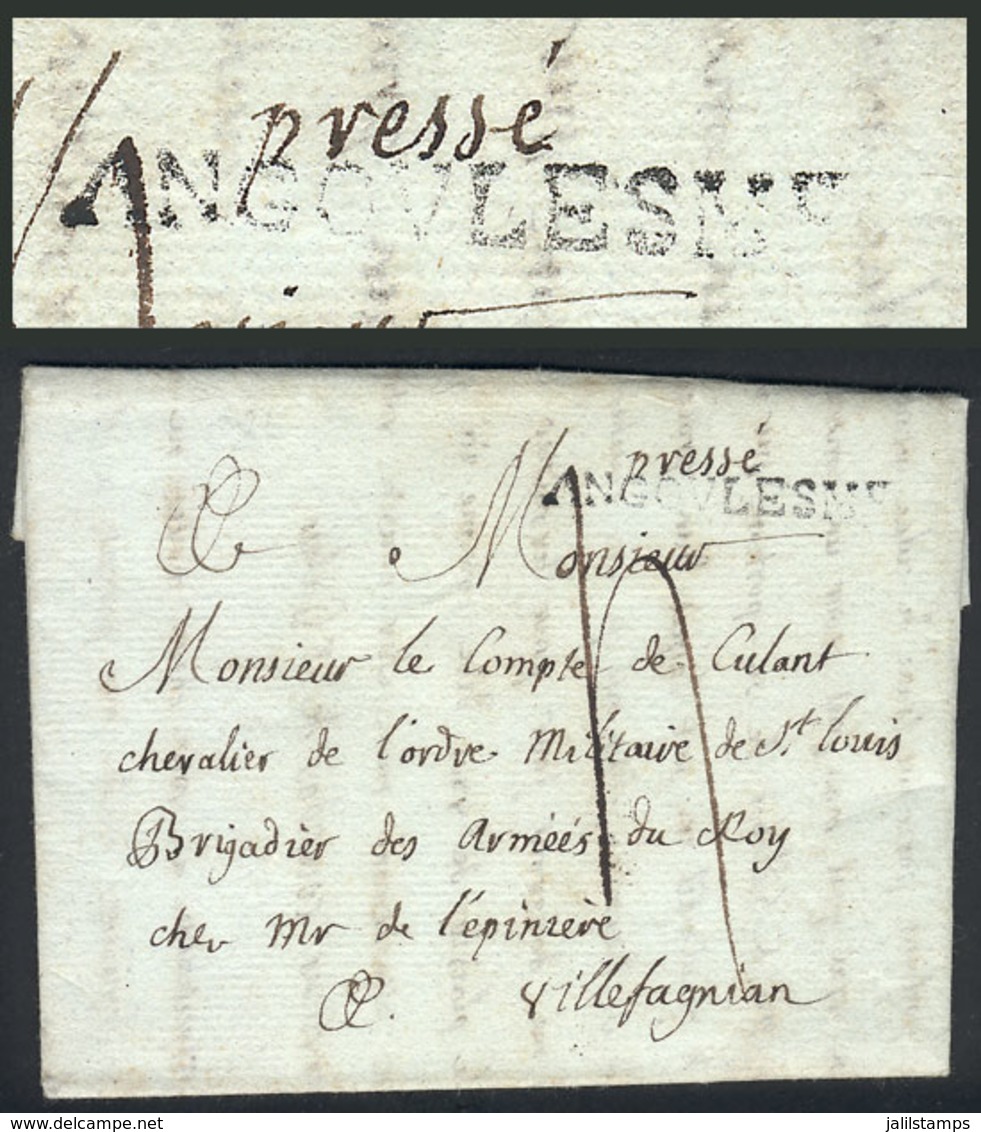 pressé
ANGOVLESME
pressé
ANGOVLESME
Monsieur
Monsieur le Compte de Culant
chevalier de l'ordre Militaire de St. louis
Brigadier des Armées du Roy
cher Mr de l'épiniere
villefagnian
jalilstamps